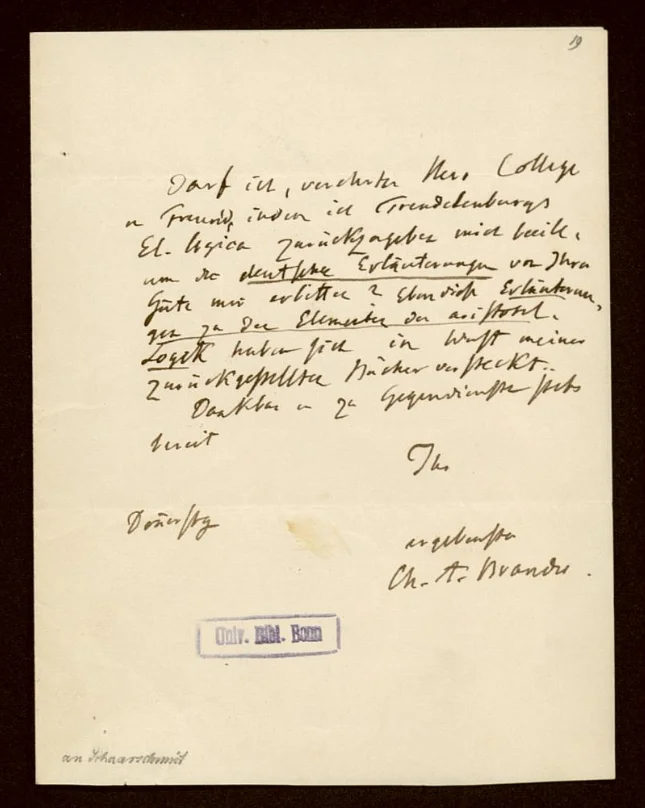 19
Darf ich, verehrter Herr College
u Freund, indem ich Trendelenburgs
El. logica zurückzugeben mich beeile,
um die deutschen Erläuterungen von Ihrer
Güte mir erbitten? Ebendiese Erläuterun-
gen zu den Elementen der aristotel.
Logik haben sich im Wust meiner
zurückgestellten Bücher versteckt.
Dankbar u zu Gegendiensten stets
bereit
Ihr
Donerstag
ergebenster
Ch. A. Brandis.
Univ. Bibl. Bonn
an Schaarschmidt